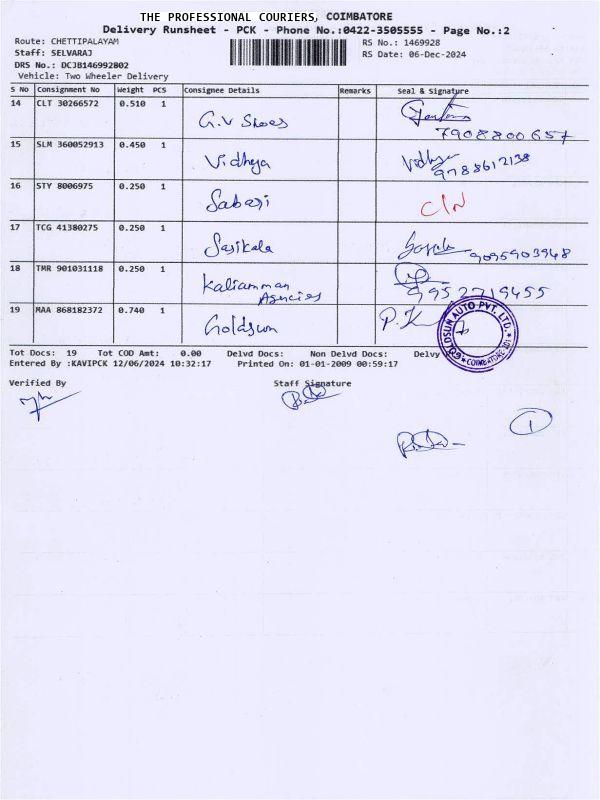 THE PROFESSIONAL COURIERS, COIMBATORE
Delivery Runsheet - PCK - Phone No.:0422-3505555 - Page No.:2
Route: CHETTIPALAYAM RS No.: 1469928
Staff: SELVARAJ RS Date: 06-Dec-2024
DRS No.: DCJB146992802
Vehicle: Two Wheeler Delivery
S No Consignment No Weight PCS Consignee Details Remarks Seal & Signature
14 CLT 30266572 0.510 1 G.V Shoes
7908800657
15 SLM 360052913 0.450 1 Vidhya Vidhya
9788612138
16 STY 8006975 0.250 1 Sabari C/N
17 TCG 41380275 0.250 1 Sasikala 9095903948
18 TMR 901031118 0.250 1 Kaliamman Agencies 9952719455
19 MAA 868182372 0.740 1 Goldsun P.K
GOLDSUN AUTO PVT. LTD. COIMBATORE
Tot Docs: 19 Tot COD Amt: 0.00 Delvd Docs: Non Delvd Docs: Delvy
Entered By :KAVIPCK 12/06/2024 10:32:17 Printed On: 01-01-2009 00:59:17
Verified By Staff Signature
1